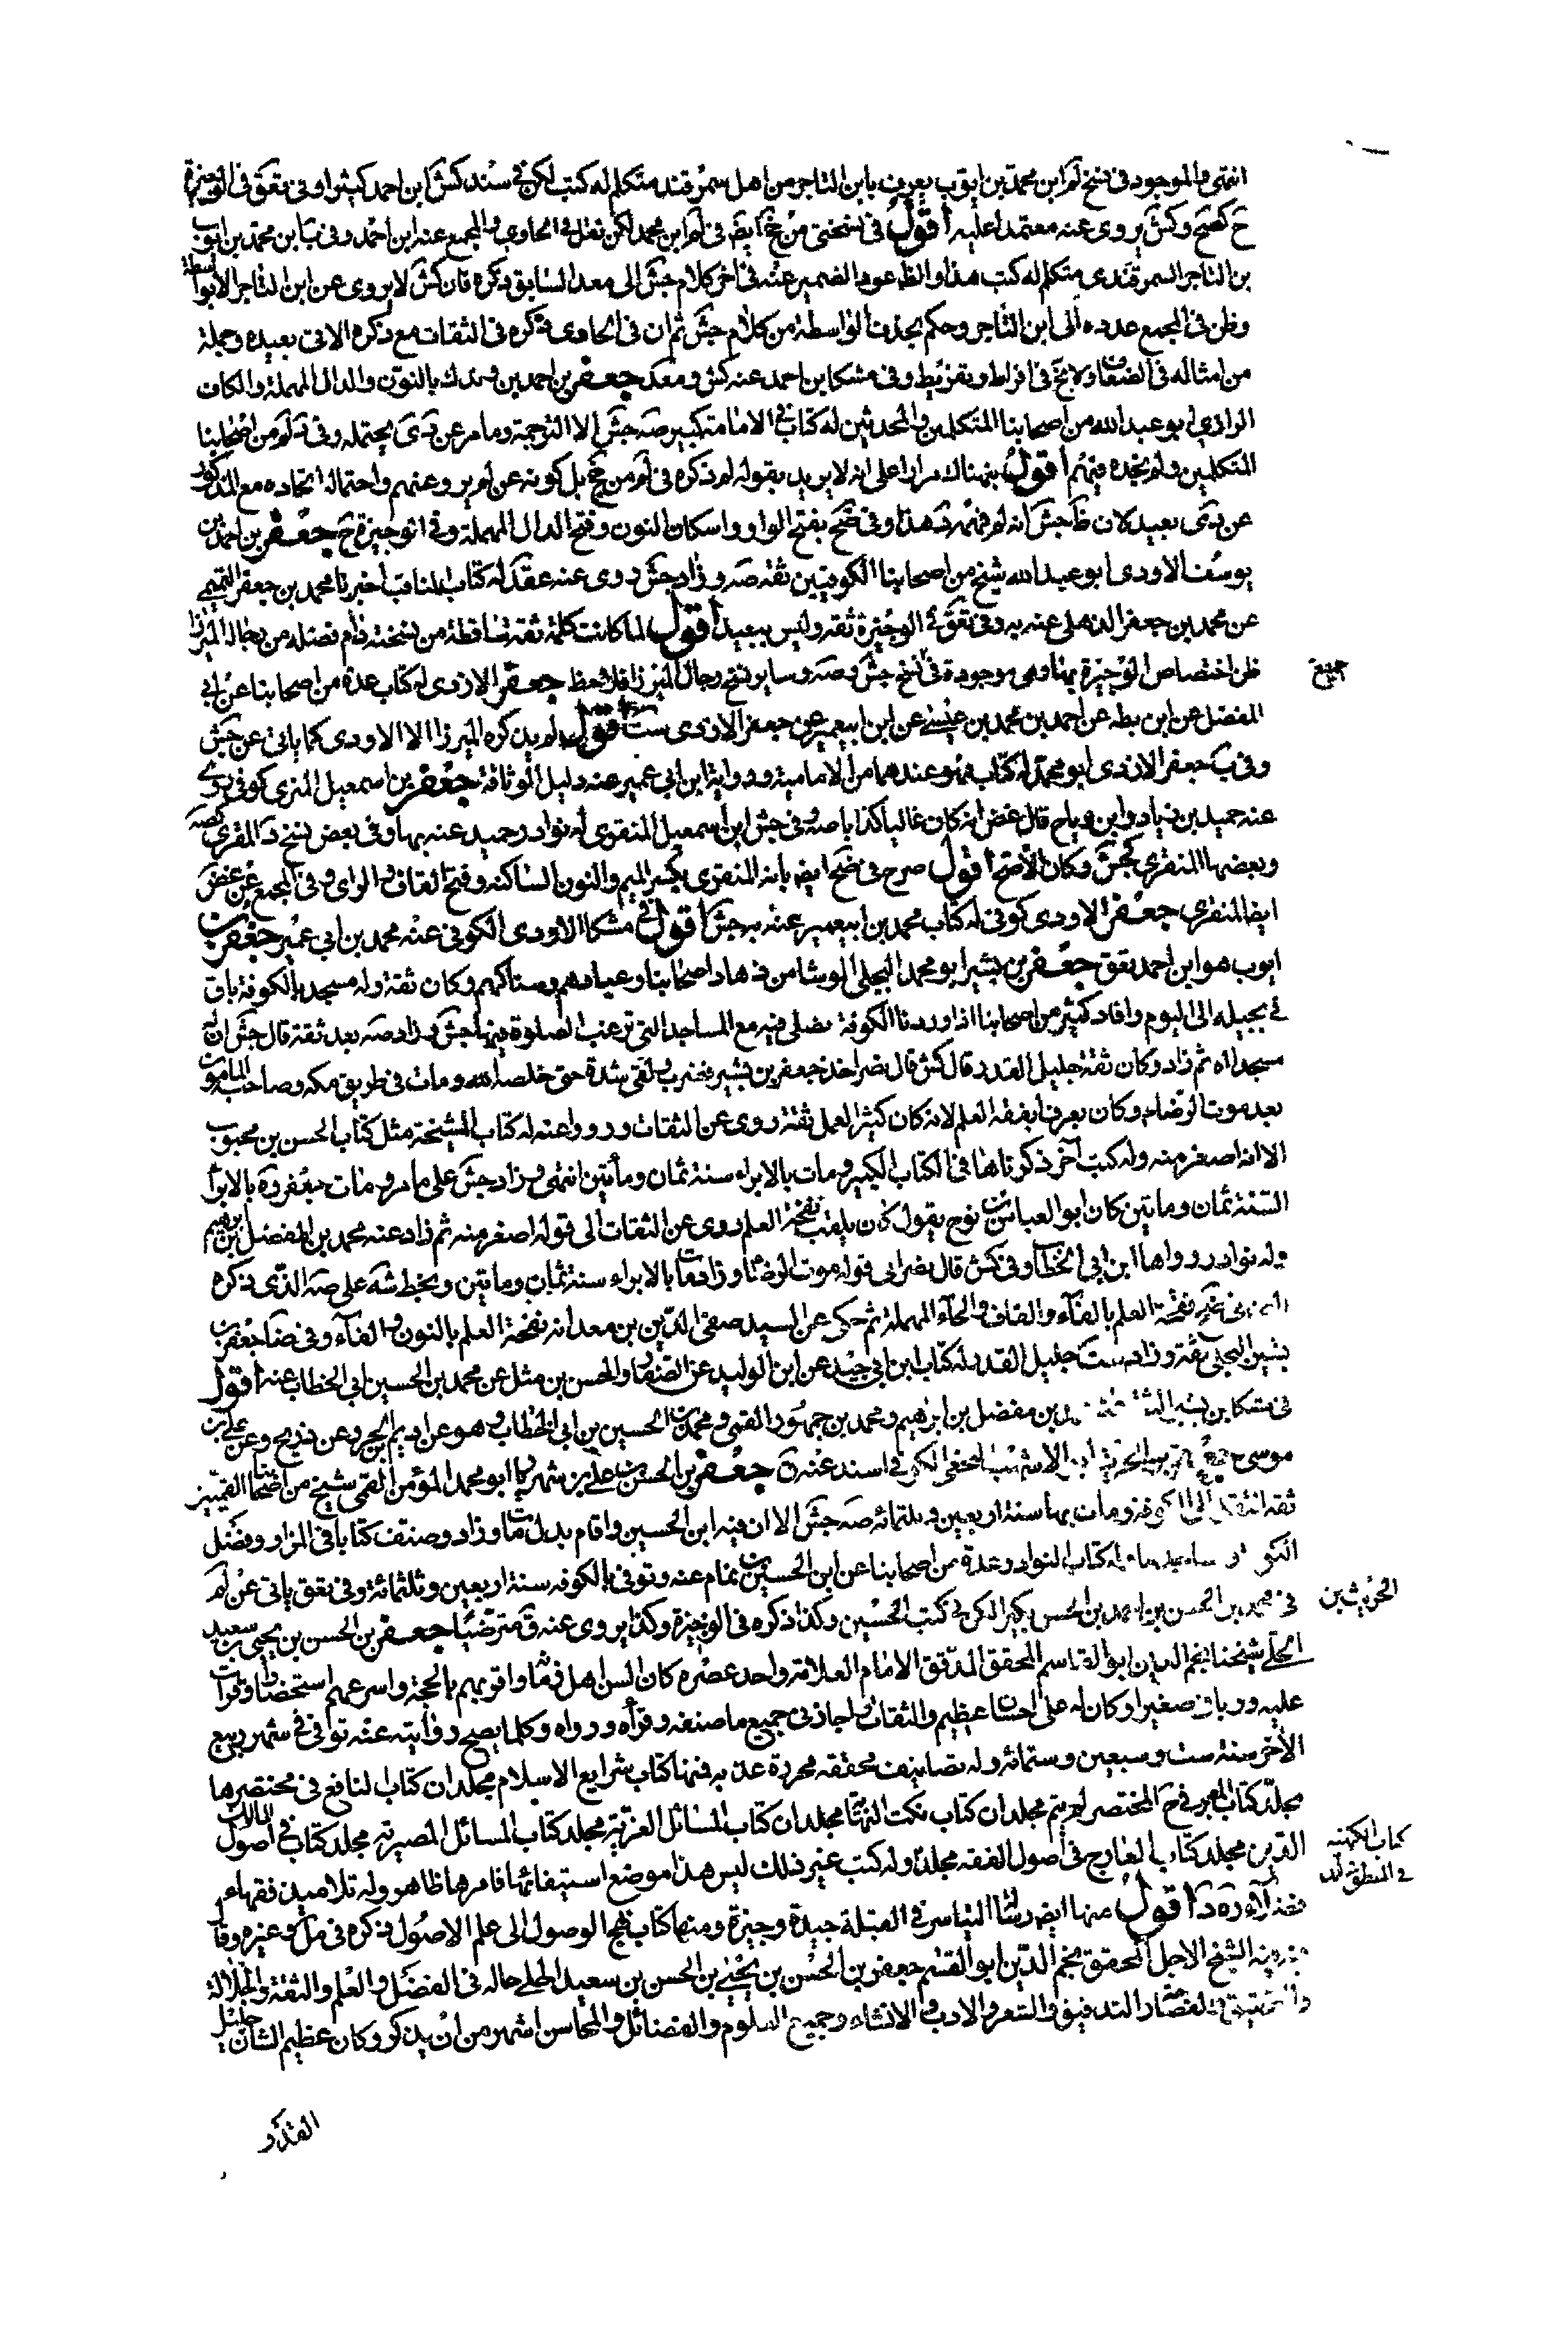 انتهى والموجود فى نسخ لم ابن محمد بن ايوب يعرف بابن التاجر من اهل سمرقند متكلم له كتب لكن فى سند كش ابن احمد كثيرا وفى تعق فى الوجيزة
ح كضح وكش يروى عنه معتمدا عليه أقول فى نسختى من جخ ايضا فى لم ابن محمد لكن نقل فى الحاوي والمجمع عنه ابن احمد وفى ب ابن محمد بن ايوب
بن التاجر السمرقندى متكلم له كتب هذا والظ عود الضمير عنه فى اخر كلام جش الى معد السابق ذكره فان كش لا يروى عن ابن التاجر الا بواسطة
وظن فى المجمع عوده الى ابن التاجر وحكم بحذف الواسطة من كلام جش ثم ان فى الحاوى ذكره فى الثقات مع ذكره الاتى بعيده وجملة
من امثاله فى الضعاف ولا يخ فى افراط وتفريط وفى مشكا ابن احمد عنه كش ومعد جعفر بن احمد بن وندك بالنون والدال المهملة والكاف
الرازي ابو عبد الله من اصحابنا المتكلمين والمحدثين له كتاب فى الامامة كبير صه جش الا الترجمة ومامر عن د ى يحتمله وفى د لم من اصحابنا
المتكلمين ولم نجده فيهم أقول نبهناك مرارا على انه لا يريد بقوله لم ذكره فى لم من جخ بل كونه عن لم يرو عنهم واحتمال اتحاده مع المذكور
عن د ى بعيد كان ظ جش انه لم فهمه د هذا وفى ضح بفتح الواو واسكان النون وفتح الدال المهملة وفى الوجيزة ح جعفر بن احمد بن
يوسف الاودى ابو عبد الله شيخ من اصحابنا الكوفيين ثقة صه وزاد جش روى عنه عقد له كتاب المناقب اخبرنا محمد بن جعفر التميمي
عن محمد بن جعفر الذهلى عنه به وفى تعق فى الوجيزة ثقة وليس ببعيد أقول لما كانت كلمة ثقة ساقطة من نسخته دام فضله من رجال الميرزا
ظن اختصاص الوجيزة بها وهى موجودة فى نسخ جش وصه وساير نسخ رجال الميرزا فلاحظ جعفر الازدى له كتاب عدة من اصحابنا عن ابى
جميع
المفضل عن ابن بطه عن احمد بن محمد بن عيسى عن ابن ابيعمير عن جعفر الازدى ست أقول لم يذكره الميرزا الا الاودى كما ياتى عن جش
وفى ب جعفر الازدى ابو محمد له كتاب فهو عندهما من الامامية ورواية ابن ابى عمير عنه دليل الوثاقة جعفر بن اسمعيل المنرى كوفى روى
عنه حميد بن زياد وابن رباح قال غض انه كان غاليا كذابا صه وفى جش ابن اسمعيل المنقرى له نوادر حميد عنه بها وفى بعض نسخ د المقرى كصه
وبعضها المنقرى كجش وكان الاصح أقول صرح فى ضح ايضا بانه المنقرى بكسر الميم والنون الساكنة وفتح القاف والراى وفى المجمع عن غض
ايضا المنقرى جعفر الاودى كوفى له كتاب محمد بن ابيعمير عنه به جش أقول فى مشكا الاودى الكوفى عنه محمد بن ابى عمير جعفر بن
ايوب هو ابن احمد تعق جعفر بن بشير ابو محمد البجلى الوشا من زهاد اصحابنا وعبادهم ونساكهم وكان ثقة وله مسجد بالكوفة باق
فى بجيله الى اليوم وانا وكثير من اصحابنا اذا وردنا الكوفة نصلى فيه مع المساجد التى ترغب الصلوة فيها جش وزاد صه بعد ثقة قال جش ان له
مسجدا اه ثم زاد وكان ثقة جليل القدر قال كش قال نصر اخذ جعفر بن بشير فضرب ولقى شدة حتى خلصه الله ومات فى طريق مكه وصاحبه المأمون
بعد موت الرضاء وكان يعرف بفقه العلم لانه كان كثير العمل ثقة روى عن الثقات ورووا عنه له كتاب المشيخة مثل كتاب الحسن بن محبوب
الا انه اصغر منه وله كتب آخر ذكرناها فى الكتاب الكبير ومات بالابراء سنة ثمان ومأتين انتهى وزاد جش على مامر ومات جعفر ره بالابوا
السنة ثمان ومأتين كان ابو العباس بن نوح يقول كان يلقب نفخة العلم روى عن الثقات الى قوله اصغر منه ثم زاد عنه محمد بن المفضل بن ابراهيم
وله نوادر رواها ابن ابى الخطاب وفى كش قال نصر الى قوله موت الرضا وزاد مات بالابراء سنة ثمان ومأتين وبخط شه على صه الذى ذكره
فقحة العلم بالفاء والقاف والحاء المهملة ثم حكى عن السيد صفى الدين بن معد انه نفحة العلم بالنون والفاء وفى ضا جعفر بن
بشير البجلى ثقة وزاد ست جليل القدر له كتاب ابن ابى جيد عن ابن الوليد عن الصفار والحسن بن متيل عن محمد بن الحسين ابى الخطاب عنه أقول
فى مشكا ابن بشير الثقة محمد بن مفضل بن ابراهيم ومحمد بن جمهور القمى ومحمد بن الحسين بن ابى الخطاب وهو عن اديم بن الحر وعن ذريح وعن على بن
موسى جعفر الاشهب النخعى الكوفى اسند عنه ق جعفر بن الحسن بن على بن شهريار ابو محمد المؤمن القمى شيخ من اصحابنا القميين
ثقة انتقل الى الكوفة ومات بها سنة اربعين وثلثمائة صه جش الا ان فيه ابن الحسين واقام بدل مات وزاد وصنف كتابا فى المزار وفضل
الكوفة ومساجدها له كتاب النوادر عدة من اصحابنا عن ابن الحسين بن تمام عنه وتوفى بالكوفه سنة اربعين وثلثمائة وفى تعق ياتى عن لم
الحريث بن
فى محمد بن الحسن بن احمد بن الحسن بكير لكن فى كتب الحسين وكذا ذكره فى الوجيزة وكذا يروى عنه ق مترضيا جعفر بن الحسن بن يحيى بن سعيد
الحلى شيخنا نجم الدين ابو القاسم المحقق المدقق الامام العلامة واحد عصره كان السن اهل زمانه واقومهم بالحجة واسرعهم استحضارا قرات
عليه وربانى صغيرا وكان له على احسان عظيم والتفات واجاز لى جميع ما صنفه وقرأه ورواه وكلما يصح روايته عنه توفى فى شهر ربيع
الاخر سنة ست وسبعين وستمائه وله تصانيف محققه محررة عذبه فمنها كتاب شرايع الاسلام مجلدان كتاب النافع فى مختصرها
مجلد كتاب المعبر فى ح المختصر لم يتم مجلدان كتاب نكت النهاية مجلدان كتاب المسائل العزية مجلد كتاب المسائل المصرية مجلد كتاب المسالك فى اصول
الدين مجلد كتاب المعارج فى اصول الفقه مجلد وله كتب غير ذلك ليس هذا موضع استيفائها فامرها ظاهر وله تلاميذ فقهاء
كتاب الكهنه
فى المنطق مجلد
فضلاء ره د أقول منها ايضا رسالة التياسر فى القبلة جيدة وجيزة ومنها كتاب نهج الوصول الى علم الاصول ذكره فى مل وغيره وقال
الشيخ الاجل المحقق نجم الدين ابو القسم جعفر بن الحسن بن يحيى بن الحسن بن سعيد الحلى حاله فى الفضل والعلم والثقة والجلالة
والتحقيق والتدقيق والشعر والادب والانشاء وجميع العلوم والفضائل والمحاسن اشهر من ان يذكر وكان عظيم الشان جليل
القدر